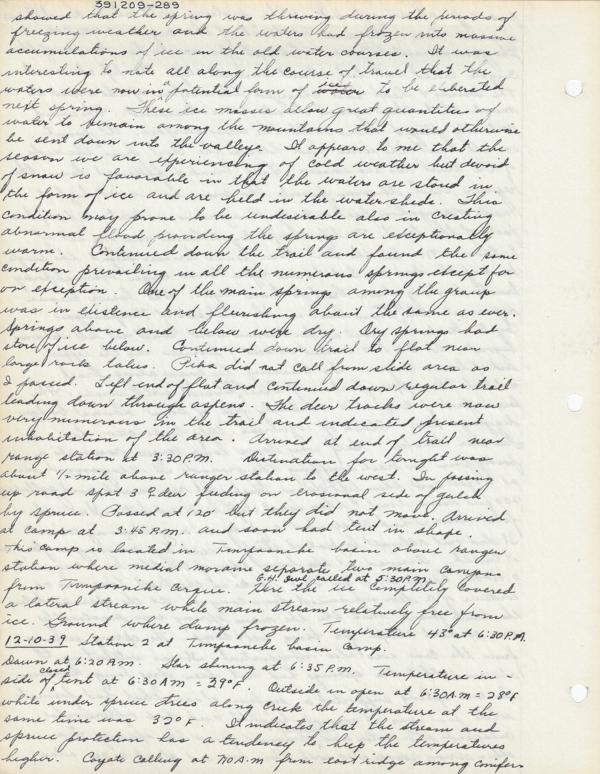 391209-289
showed that the spring was thriving during the periods of
freezing weather and the waters had frozen into massive
accumulations of ice in the old water courses. It was
interesting to note all along the course of travel that the
waters were now in potential form of ice to be eliberated
next spring. These ice masses delow great quantities of
water to remain among the mountains that would otherwise
be sent down into the valleys. It appears to me that the
season we are experiencing of cold weather but devoid
of snow is favorable in that the waters are stored in
the form of ice and are held in the watersheds. This
condition may prone to be undesirable also in creating
abnormal flood providing the springs are exceptionally
warm. Continued down the trail and found the same
condition prevailing in all the numerous springs except for
on exception. One of the main springs among the group
was in existence and flourishing about the same as ever.
Springs above and below were dry. Dry springs had
store of ice below. Continued down trail to flat near
large rock talus. Pika did not call from slide area as
I passed. Left end of flat and continued down regular trail
leading down through aspens. The deer tracks were now
very numerous in the trail and indicated present
inhabitation of the area. Arrived at end of trail near
range station at 3:30 P.M. Distination for tonight was
about 1/2 mile above ranger station to the west. In passing
up road spot 3 ♀ deer feeding on erosional side of gulch
by spruce. Passed at 120' but they did not move. Arrived
at camp at 3:45 P.M. and soon had tent in shape.
This camp is located in Timpanoke basin above ranger
station where medial moraine separate two main canyons
G.H. Owl called at 5:30 P.M.
from Timpanoike cirque. Here the ice completely covered
a lateral stream while main stream relatively free from
ice. Ground where damp frozen. Temperature 43° at 6:30 P.M.
12-10-39 Station 2 at Timpanoke basin Camp.
Dawn at 6:20 A.M. Star shining at 6:35 P.M. Temperature in-
closed
side of tent at 6:30 AM = 39°F. Outside in open at 6:30 A.M = 28°F
while under spruce trees along creek the temperature at the
same time was 32°F. It indicates that the stream and
spruce protection has a tendency to keep the temperatures
higher. Coyote calling at 7:10 A.M from east ridge among conifers